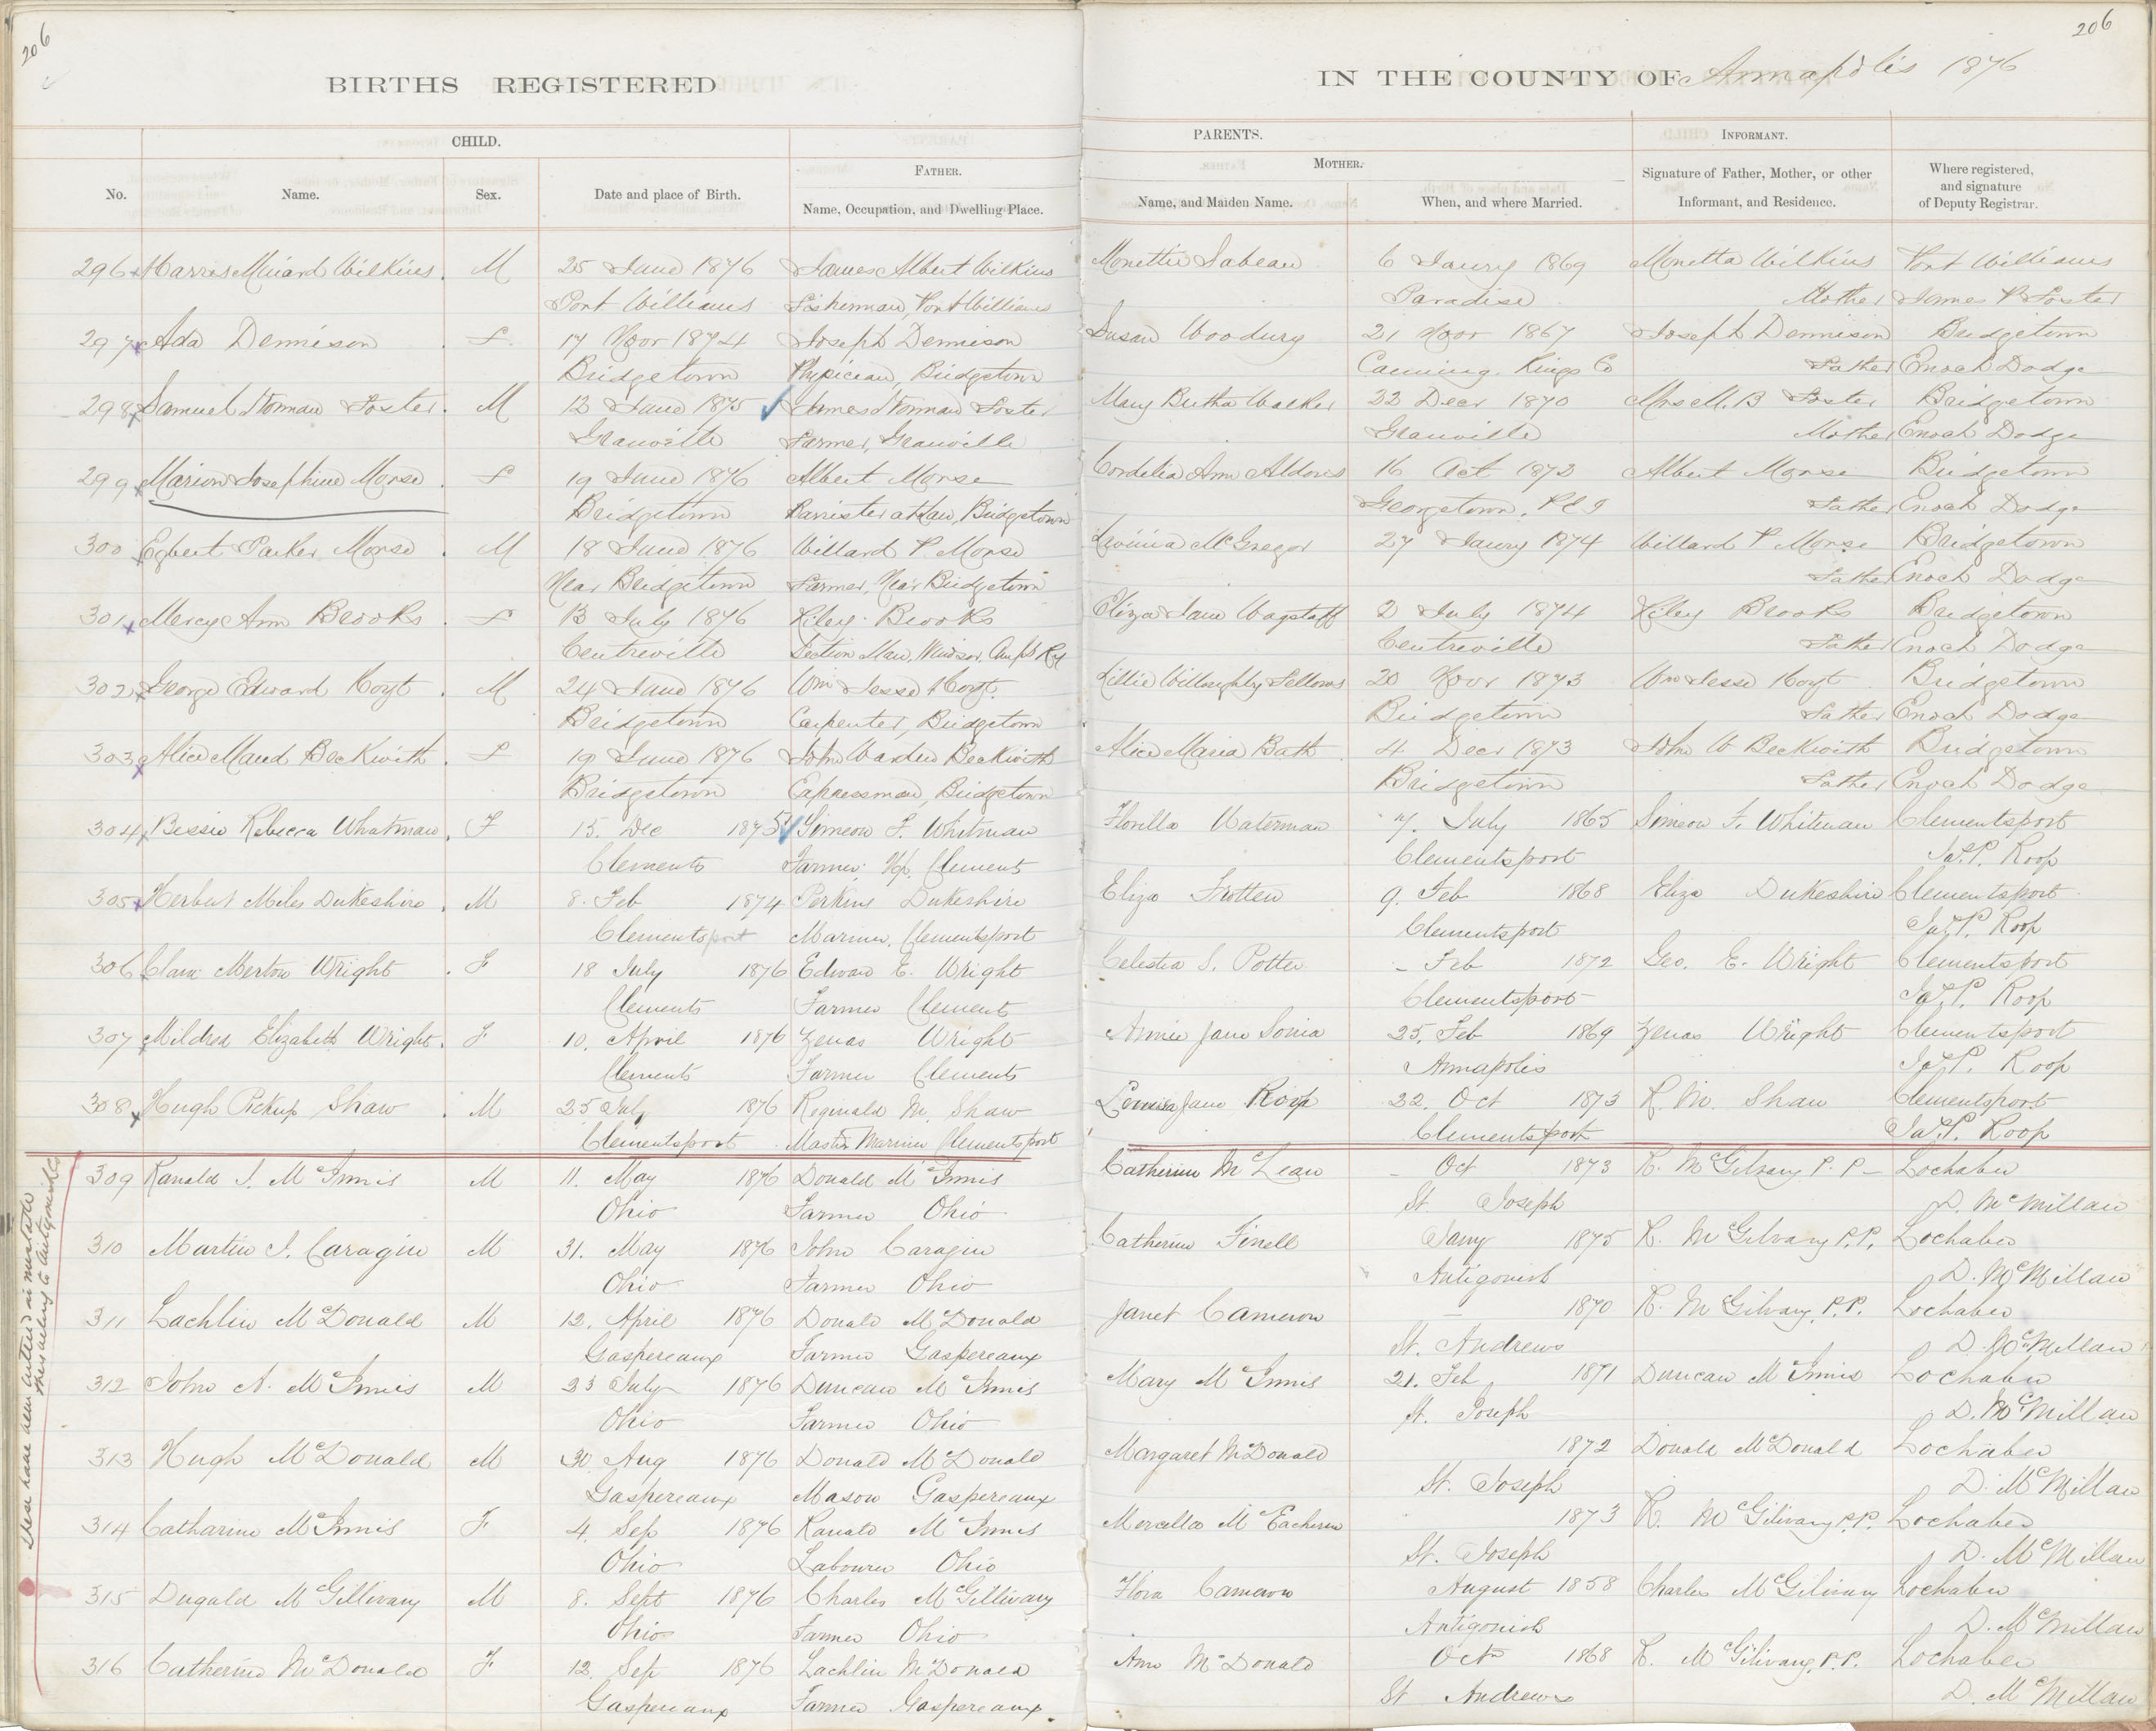 206
206
BIRTHS REGISTERED
IN THE COUNTY OF Annapolis 1876
CHILD.
PARENTS.
INFORMANT.
No.
Name.
Sex.
Date and place of Birth.
FATHER.
Name, Occupation, and Dwelling Place.
MOTHER.
Name, and Maiden Name.
When, and where Married.
Signature of Father, Mother, or other
Informant, and Residence.
Where registered,
and signature
of Deputy Registrar.
296 Harris Wilkins M 25 June 1876 James Albert Wilkins Monettie Sabean 6 Jany 1869 Monetta Wilkins Port Williams
Port Williams Fisherman, Port Williams Paradise Mother James P Foster
297 Ada Dennison F 17 Novr 1874 Joseph Dennison Susan Woodury 21 Novr 1867 Joseph Dennison Bridgetown
Bridgetown Physician, Bridgetown Canning. Kings Co Father Enoch Dodge
298 Samuel Norman Foster M 12 June 1875 James Norman Foster Mary Bertha Walker 22 Decr 1870 Mrs M. B Foster Bridgetown
Granville Farmer, Granville Granville Mother Enoch Dodge
299 Marion Josephine Morse F 19 June 1876 Albert Morse Cordelia Ann 16 Oct 1873 Albert Morse Bridgetown
Bridgetown Barrister at Law, Bridgetown Georgetown, P E I Father Enoch Dodge
300 Egbert Parker Morse M 18 June 1876 Willard P. Morse Lavinia McGregor 27 Jany 1874 Willard P Morse Bridgetown
Near Bridgetown Farmer, Near Bridgetown Father Enoch Dodge
301 Mercy Ann Brooks F 13 July 1876 Riley Brooks Eliza Jane Wagstaff 2 July 1874 Riley Brooks Bridgetown
Centreville Section Man, Windsor, Anpls Ry Centreville Father Enoch Dodge
302 George Edward Hoyt M 24 June 1876 Wm Jesse Hoyt Lillie Willoughby Fellows 20 Novr 1873 Wm Jesse Hoyt Bridgetown
Bridgetown Carpenter, Bridgetown Bridgetown Father Enoch Dodge
303 Alice Maud Beckwith F 19 June 1876 John Warden Beckwith Alice Maria Bath 4 Decr 1873 John W Beckwith Bridgetown
Bridgetown Expressman, Bridgetown Bridgetown Father Enoch Dodge
304 Bessie Rebecca Whatman F 15. Dec 1875 Simeon F. Whitman Florilla Waterman 7. July 1865 Simeon F. Whitman Clementsport
Clements Farmer, Up. Clement Clementsport Jas. P. Roop
305 Herbert Miles Dukeshire M 8. Feb 1874 Perkins Dukeshire Eliza Trotten 9. Feb 1868 Eliza Dukeshire Clementsport
Clementsport Mariner, Clementsport Clementsport Jas. P. Roop
306 Clara Merton Wright F 18 July 1876 Edward E. Wright Celestia S. Potter – Feb 1872 Geo. E. Wright Clementsport
Clements Farmer Clement Clementsport Jas. P. Roop
307 Mildred Elizabeth Wright F 10. April 1876 Zenas Wright Annie Jane Sonia 25. Feb 1869 Zenas Wright Clementsport
Clements Farmer Clements Annapolis Jas. P. Roop
308 Hugh Pickup Shaw M 25 July 1876 Reginald M. Shaw Louisa Jane Roop 22. Oct 1873 R. M. Shaw Clementsport
Clementsport Master Mariner Clementsport Clementsport Jas. P. Roop
These have been entered in mistake
they belong to Antigonish Co
309 Ranald J. McInnis M 11. May 1876 Donald McInnis Catherine McLean – Oct 1873 R. McGilvary P. P– Lochaber
Ohio Farmer Ohio St. Joseph D. McMillan
310 Martin J. Caragin M 31. May 1876 John Caragin Catherine Finell Jany 1875 R. McGilvary P.P. Lochaber
Ohio Farmer Ohio Antigonish D. McMillan
311 Lachlin McDonald M 12. April 1876 Donald McDonald Janet Cameron – 1870 R. McGilvary, P.P. Lochaber
Gaspereaux Farmer Gaspereaux St. Andrews D. McMillan
312 John A. McInnis M 23 July 1876 Duncan McInnis Mary McInnis 21. Feb 1871 Duncan McInnis Lochaber
Ohio Farmer Ohio St. Joseph D. McMillan
313 Hugh McDonald M 30. Aug 1876 Donald McDonald Margaret McDonald 1872 Donald McDonald Lochaber
Gaspereaux Mason Gaspereaux St. Joseph D. McMillan
314 Catharine McInnis F 4. Sep 1876 Ranald McInnis Mercella McEachern 1873 R. McGilivary P.P. Lochaber
Ohio Labourer Ohio St. Joseph D. McMillan
315 Dugald McGillivary M 8. Sept 1876 Charles McGillivary Flora Cameron August 1858 Charles McGilivary Lochaber
Ohio Farmer Ohio Antigonish D. McMillan
316 Catherine McDonald F 12. Sep 1876 Lachlin McDonald Ann McDonald Octr 1868 R. McGilivary, P.P. Lochaber
Gaspereaux Farmer Gaspereaux St Andrews D. McMillan